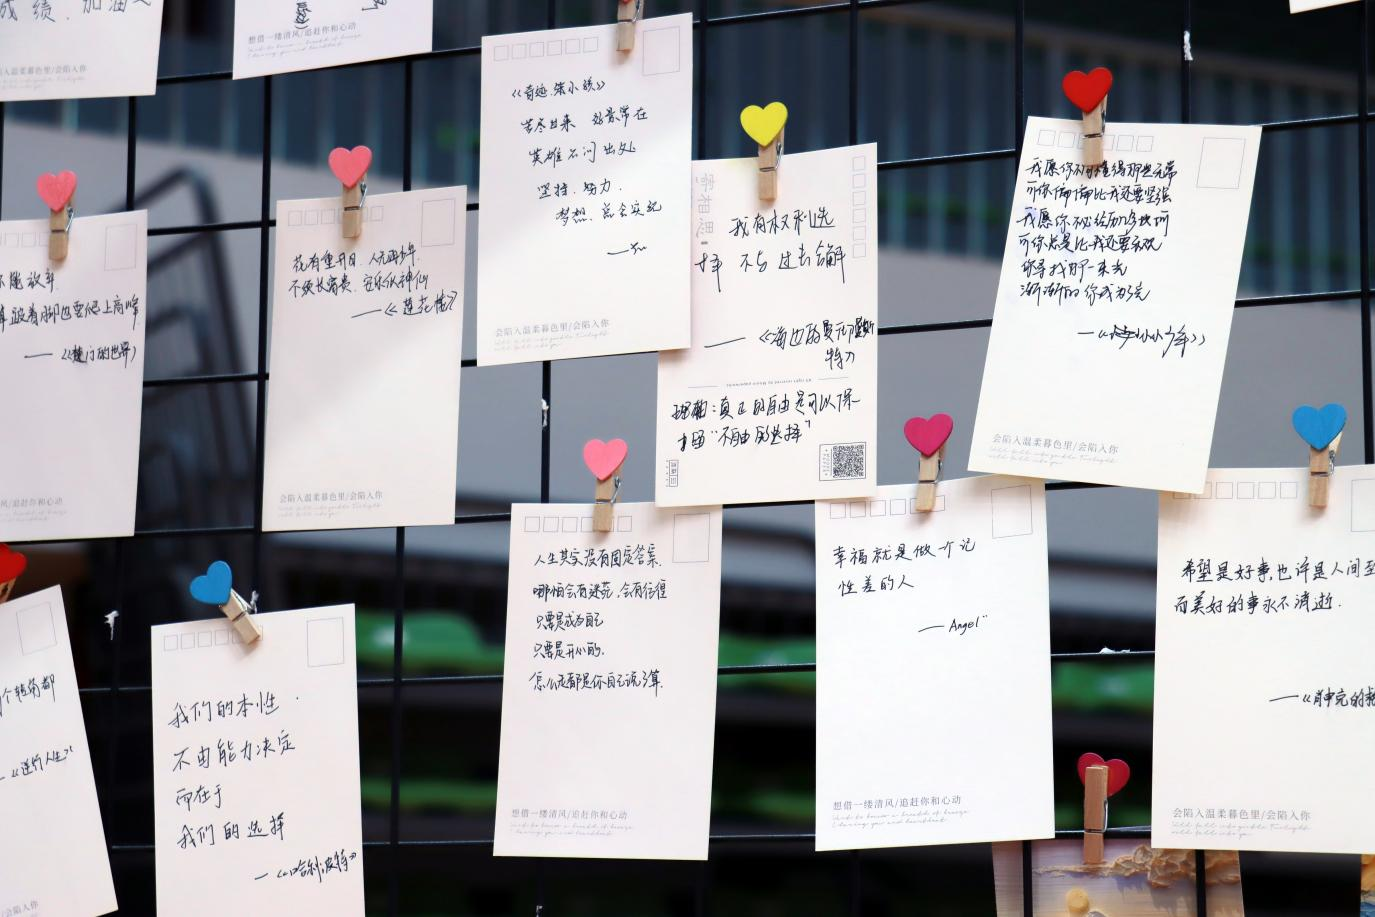 成绩，加油
会陷入温柔暮色里/会陷入你
想借一缕清风/追赶你和心动
《奇迹·笨小孩》
苦尽甘来 好景常在
英雄不问出处
坚持、努力、
梦想、总会实现
会陷入温柔暮色里/会陷入你
不能放弃.
着脚也要爬上高峰
——《楚门的世界》
风/追赶你和心动
花有重开日，人无再少年.
不须长富贵，安乐似神仙
——《莲花楼》
会陷入温柔暮色里/会陷入你
我有权利选
择 不与过去和解
——《海边的曼彻斯
特》
理解：真正的自由是可以保
留“不自由的选择”
我愿你不曾懂得那些无常
可你偏偏比我还要坚强
我愿你不必经历
可你总是比我还要乐观
你寻找的一束光
渐渐的你成为光
——《小小少年》
会陷入温柔暮色里/会陷入你
个转角都
——《逆行人生》
会陷入你
我们的本性.
不由能力决定
而在于
我们的选择
——《哈利波特》
人生其实没有固定答案.
哪怕会有迷茫，会有彷徨
只要是成为自己
只要是开心的.
怎么走都是你自己说了算.
想借一缕清风/追赶你和心动
幸福就是做一个记
性差的人
——Angel"
想借一缕清风/追赶你和心动
希望是好事,也许是人间至
而美好的事永不消逝.
——《肖申克的救
会陷入温柔暮色里/会陷入你